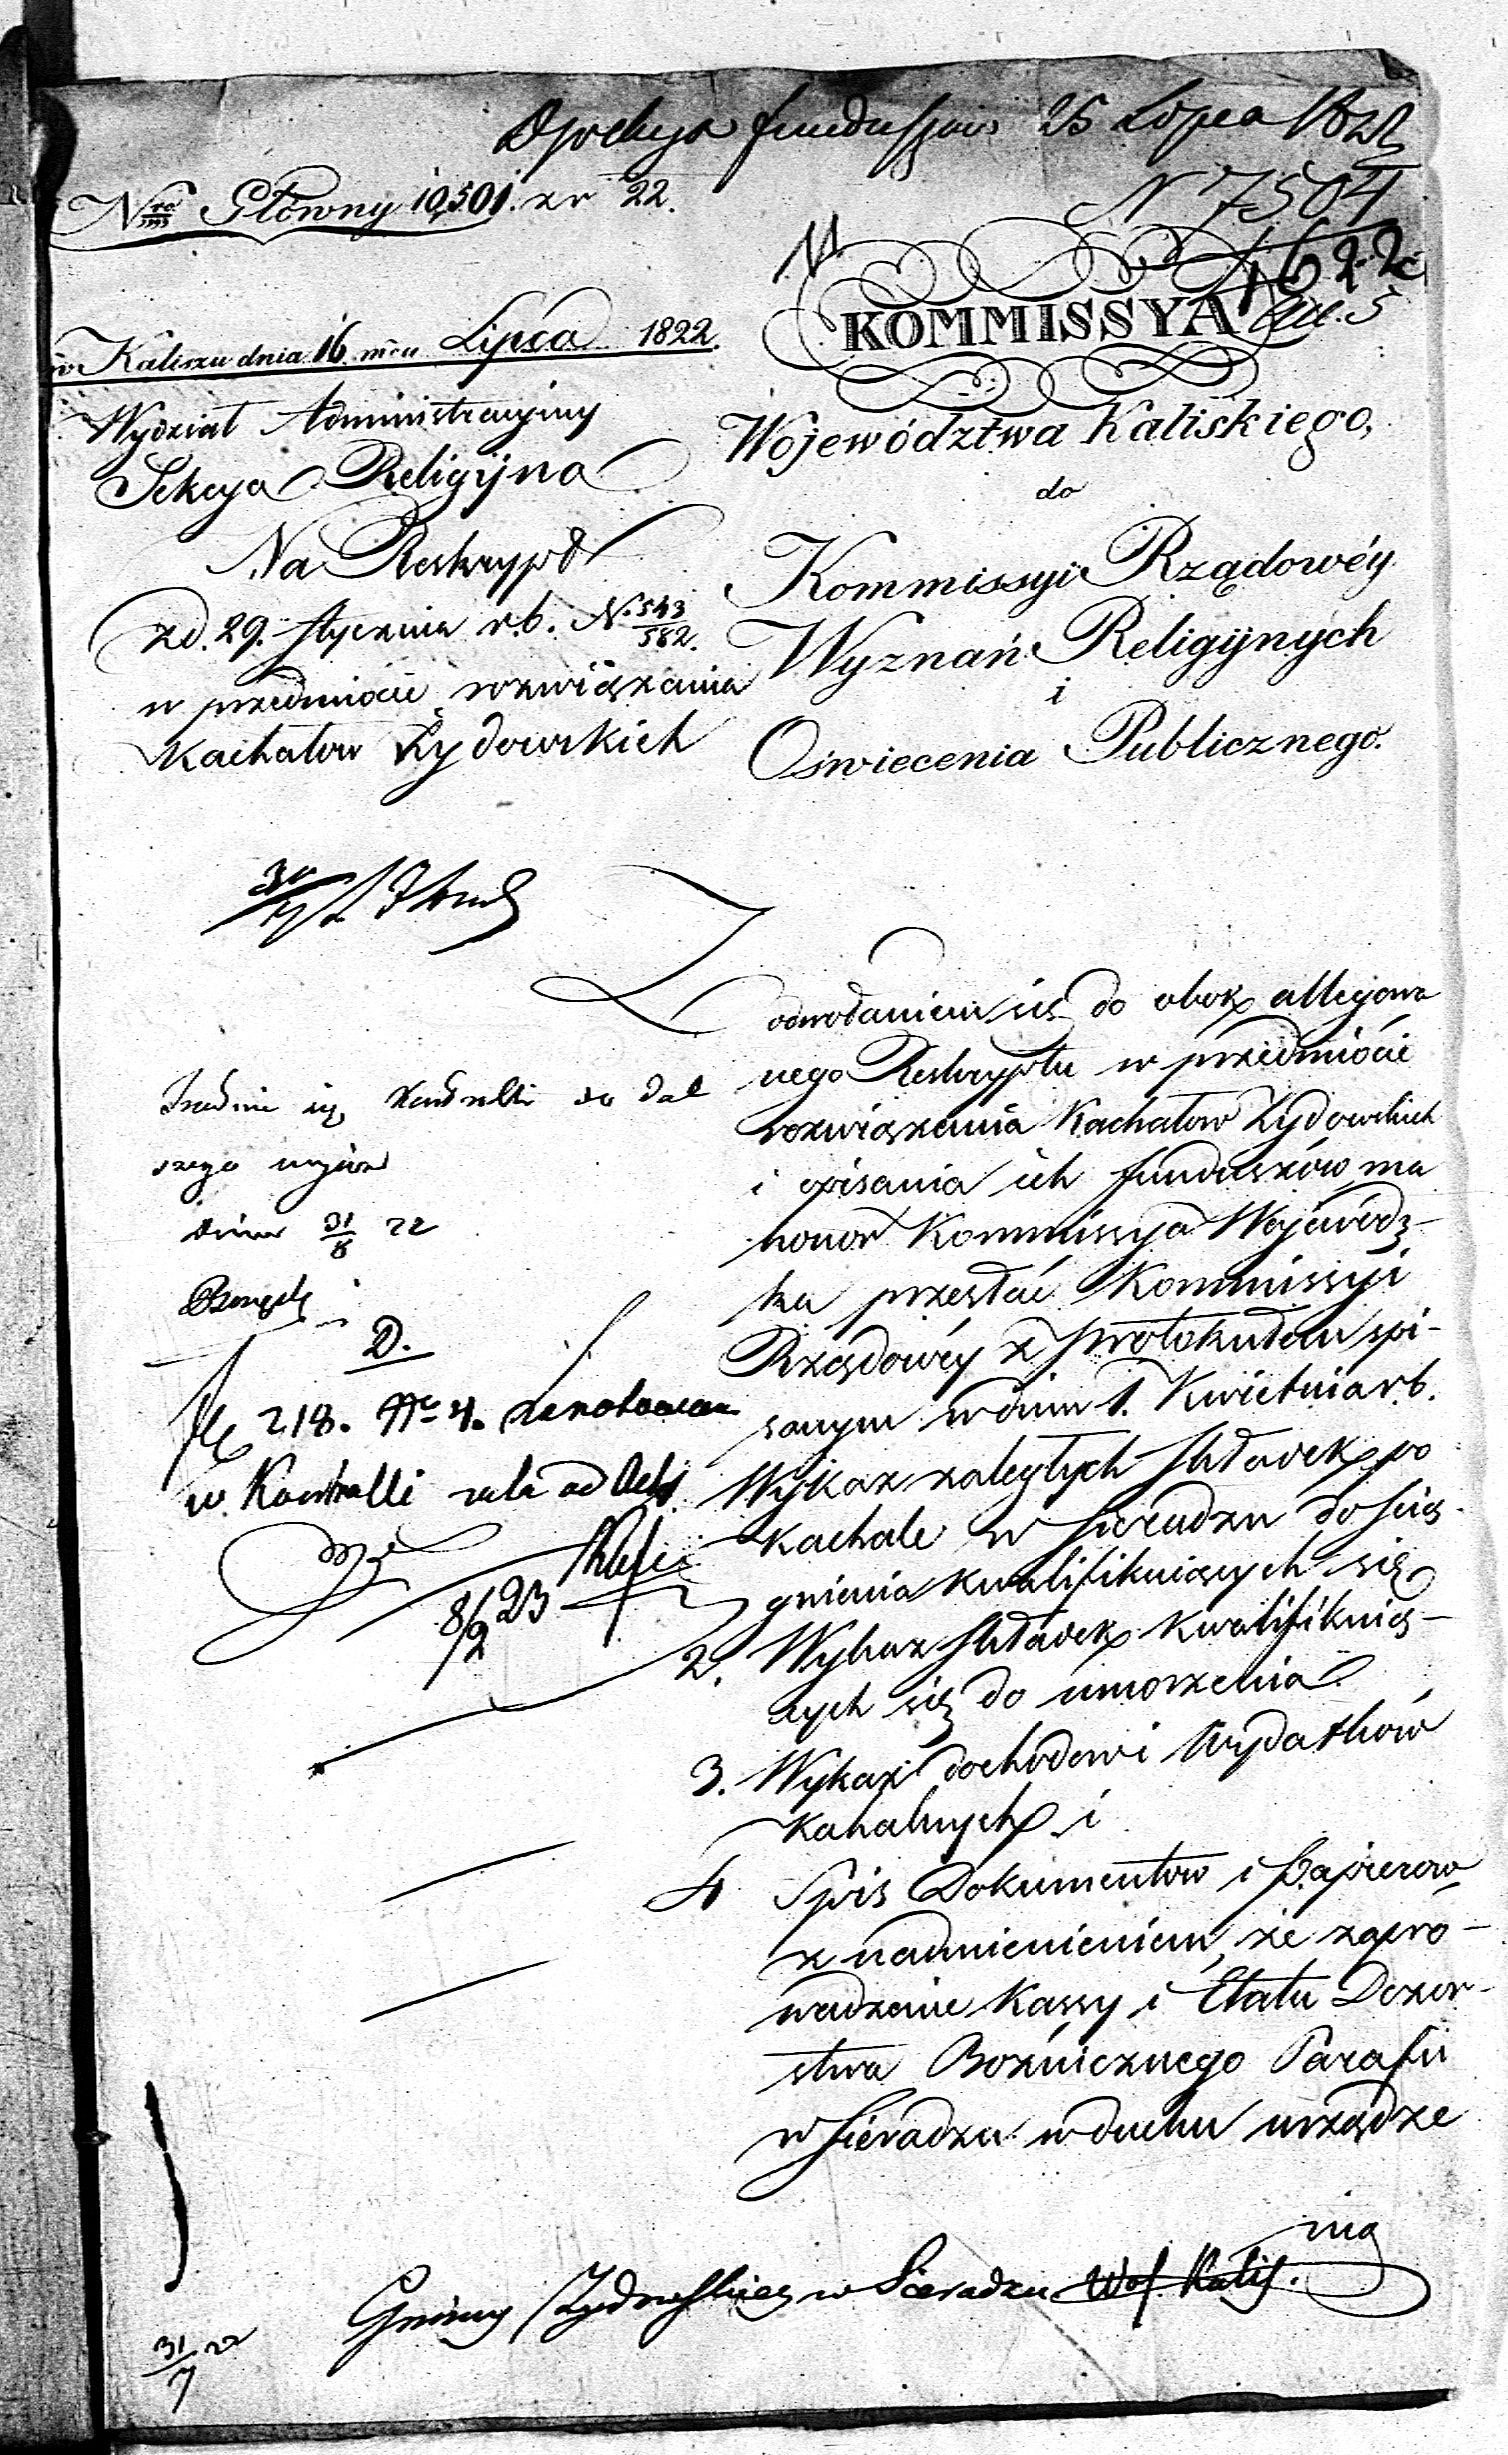 funduszów 25 Lipca 1822
N 7504
Nro Główny 10,501. zr 22.
1622
w Kaliszu dnia 16. mca Lipca 1822.
Wydział Administracyiny
Sekcya Religijna
Na Reskrypt
zd. 29. Stycznia r.b. N. 543/582.
w przedmiocie rozwiązania
Kachałow Żydowskich
KOMMISSYA
Województwa Kaliskiego,
do
Kommissyi Rządowéy
Wyznań Religijnych
i
Oświecenia Publicznego.
Z odwołaniem się do obok allegowa
nego Reskryptu w przedmiocie
rozwiązania Kachałow Żydowskich
i opisania ich funduszów, ma
honor Kommissya Wojewódz-
ka przesłać Kommissyi
Rządowéy z protokułem spi-
sanym w dniu 1. Kwietnia r.b.
Wykaz zaległych składek po
Kachale w Sieradzu do ścią-
gnienia kwalifikuiących się
2. Wykaz składek kwalifikuią-
cych się do umorzenia
3. Wykaz dochodow i Wydatków
Kahalnych i
4 Spis Dokumentow i Papierow
z nadmienieniem, że zapro-
wadzenie Kassy i Etatu Dozor-
stwa Bożnicznego Parafii
w Sieradzu w duchu urządze
nia
szego
dnia 31/8 22
D.
218. Nr 4. zanotowano
w Kontrolli
8/2 23
Gminy Żydowskiey w Sieradzu Woj. Kalis.
31/7 22